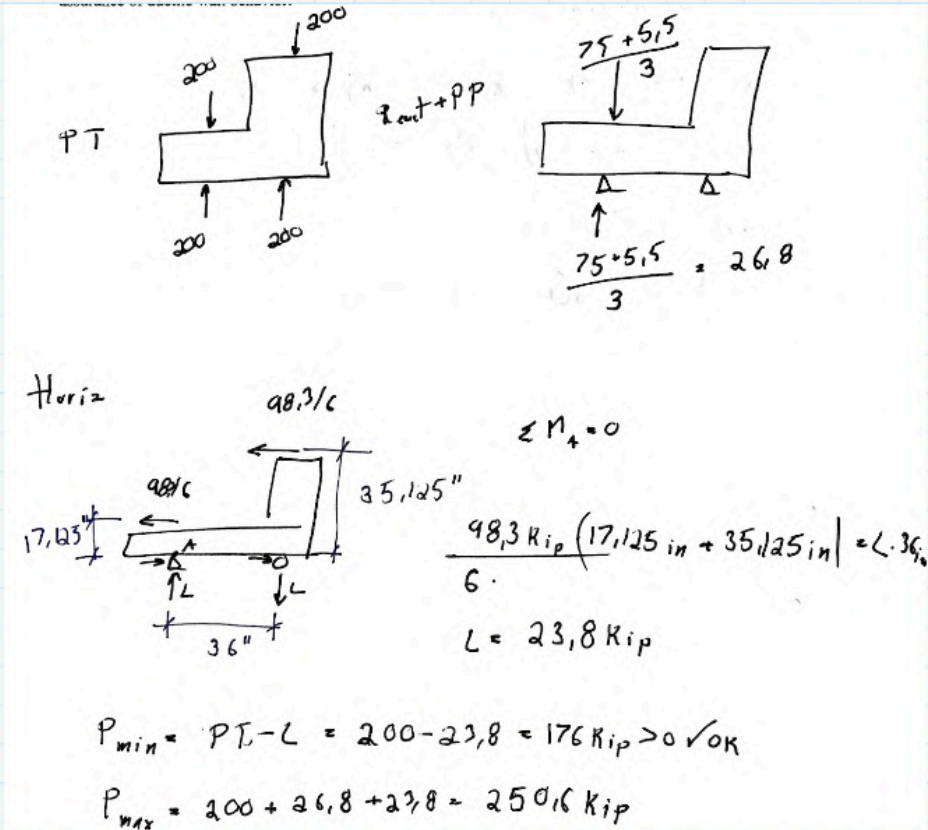 200
200
PT
200
200
+PP
75+5,5
3
75+5,5
3
= 26,8
Horiz
98,3/6
98,3/6
35,125"
17,125"
A
L
L
36"
Σ M_A = 0
98,3 Kip (17,125 in + 35,125 in) = L·36in
6
L = 23,8 Kip
P_min = PT-L = 200-23,8 = 176 Kip >0 ✓OK
P_max = 200 + 26,8 + 23,8 = 250,6 Kip